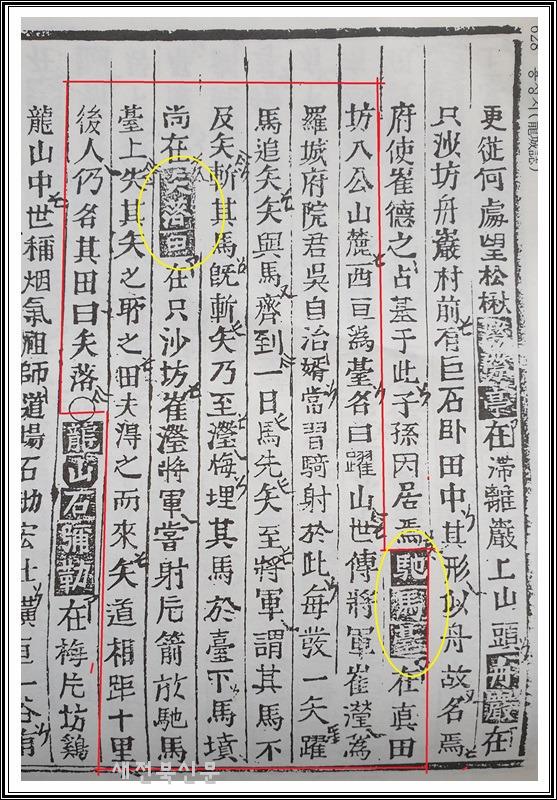 628 용성지(龍城誌)
更從何處望松楸亭在滯離巖上山頭舟巖在
只沙坊舟巖村前有巨石卧田中其形似舟故名焉
府使崔德之占基于此子孫因居焉馳馬臺在真田
坊八公山麓西亘爲臺名曰躍山世傳將軍崔瀅爲
羅城府院君吳自治婿嘗習騎射於此每發一矢躍
馬追矢矢與馬齊到一日馬先矢至將軍謂其馬不
及矢斬其馬旣斬矢乃至瀅悔埋其馬於臺下馬墳
尚在矢落田在只沙坊崔瀅將軍嘗射片箭於馳馬
臺上失其矢之所之田夫得之而來矢道相距十里
後人仍名其田曰矢落○龍山石彌勒在梅片坊鷄
龍山中世稱烟氣祖師道場石勒宏壯橫亘一谷有
새전북신문